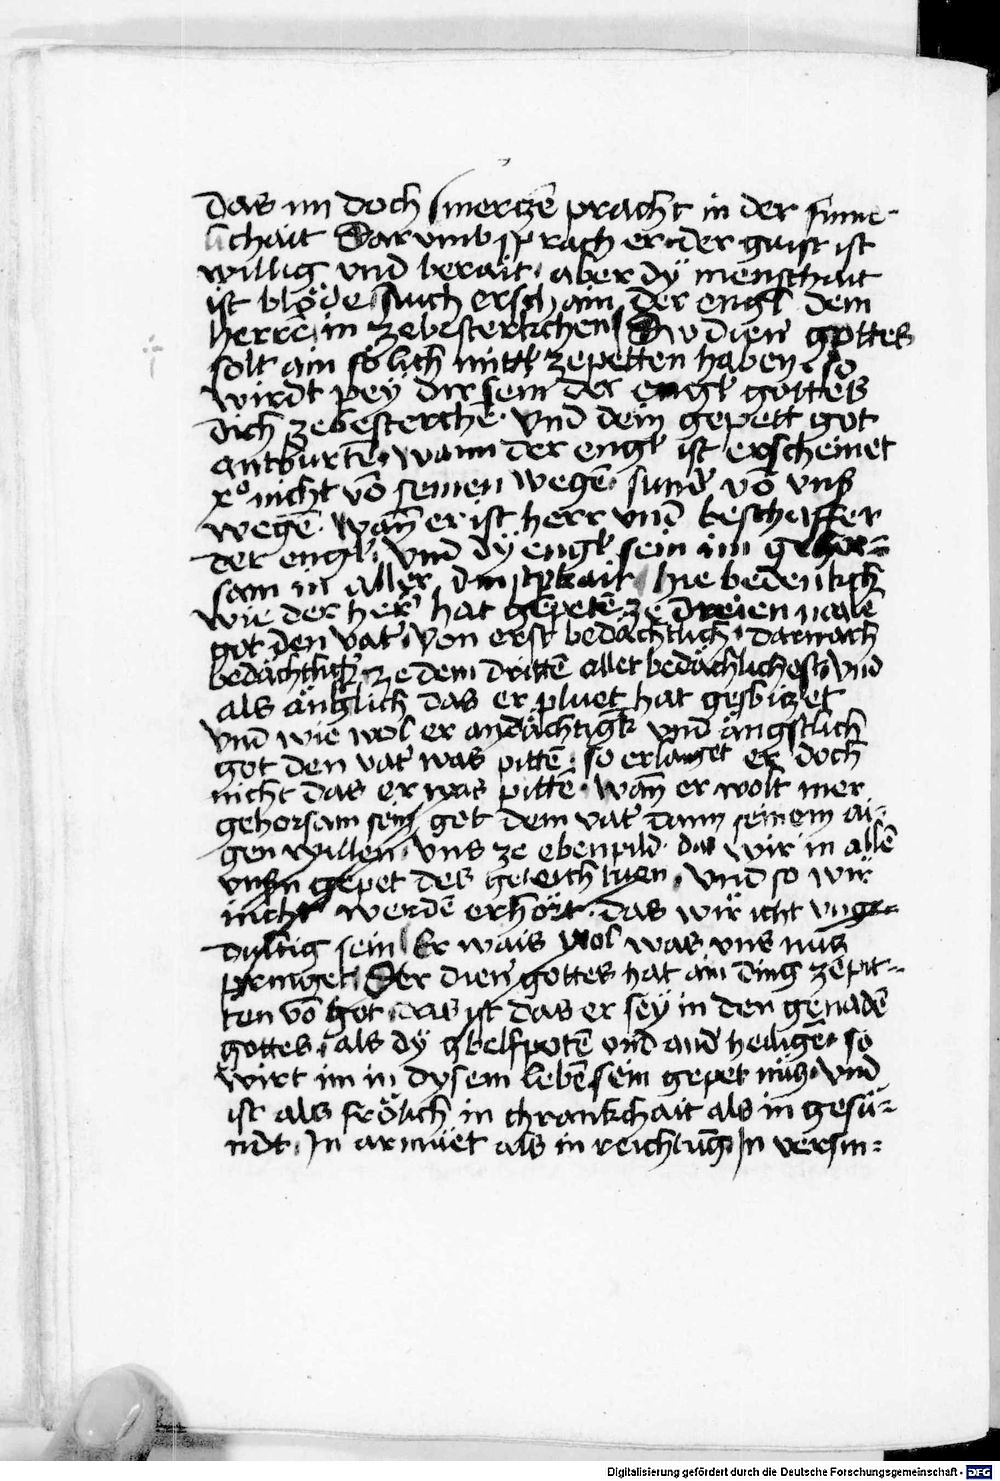 das im doch smertzē pracht in der sinne-
lichait Darumb sprach er der gaist ist
willig vnd berait · aber dÿ menschait
ist blöde Auch erschain der engl dem
herrē in zebesterkchen Du dien̄ gottes
solt ain sölich mittl zepetten haben · so
wirdt pey dir sein der engl gottes
dich zebesterchē · vnd dem gepett got
antburtē · wann der engl ist erscheinet
xº nicht vō seinen wegē · sund̄ vō vnsß
wegē · wan̄ er ist herr vnd beschaffer
der engl · vnd dÿ engl sein im gehor=
sam in aller hie bedenkch
wie der her̄ hat gepetē ze dreien malē
got den vat̄ · von erst bedächtlich · darnach
bedächtlich̄ · ze dem drittē aller bedächlichest · vnd
als änglich das er pluet hat gesbitzet
vnd wie wol er andächtigk̄ vnd ängstlich
got den vat̄ was pittē · so erlanget er doch
nicht das er was pittē · wan̄ er wolt mer
gehorsam sein got dem vat̄ dann seinem ai=
gen willen · vns ze ebenpild · das wir in allē
vnsn̄ gepet des geleich tuen · vnd so wir
nicht werdē erhört · das wir icht vnge=
dultig sein Er wais wol was vns nus
pringet Der dien̄ gottes hat ain ding zepit=
ten vō got · das ist das er sey in den genadē
gottes · als dÿ zbelfpotē vnd and̄ heiligē · so
wirt im in dysem lebē sein gepet nüs · vnd
ist als frölich in chrankchait als in gesü=
ndt · In armüet als in reichtū In versm=
Digitalisierung gefördert durch die Deutsche Forschungsgemeinschaft - DFG